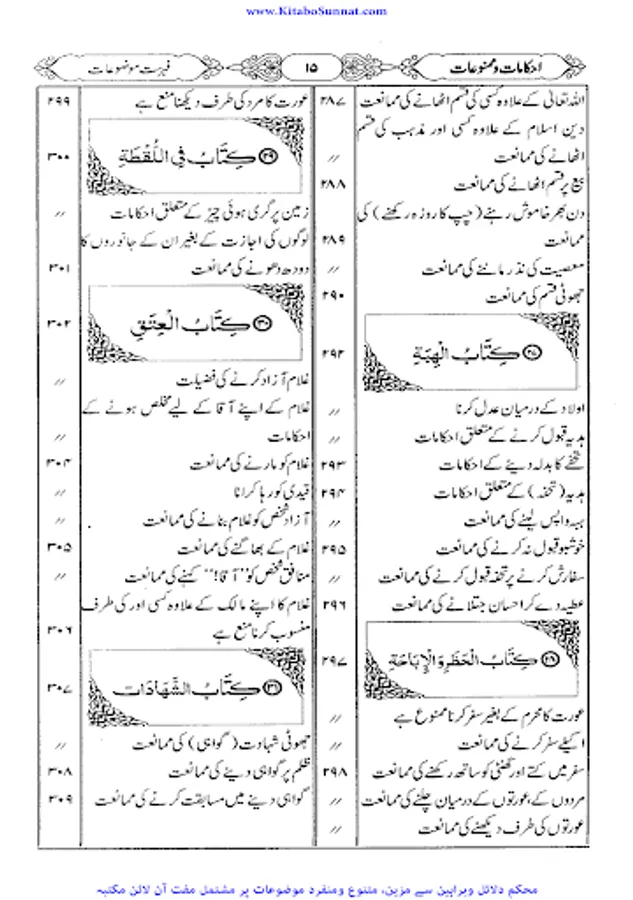 www.KitaboSunnat.com
احکامات و ممنوعات ۱۵ فہرست موضوعات
اللہ تعالیٰ کے علاوہ کسی کی قسم اٹھانے کی ممانعت ۲۸۷
دین اسلام کے علاوہ کسی اور مذہب کی قسم
اٹھانے کی ممانعت //
بیع پر قسم اٹھانے کی ممانعت ۲۸۸
دن بھر خاموش رہنے (چپ کا روزہ رکھنے) کی
ممانعت ۲۸۹
معصیت کی نذر ماننے کی ممانعت //
جھوٹی قسم کی ممانعت ۲۹۰
كِتَابُ الْهِبَةِ ۲۹۲
اولاد کے درمیان عدل کرنا //
ہدیہ قبول کرنے کے متعلق احکامات //
تحفے کا بدلہ دینے کے احکامات ۲۹۳
ہدیہ (تحفہ) کے متعلق احکامات ۲۹۴
ہبہ واپس لینے کی ممانعت //
خوشبو قبول نہ کرنے کی ممانعت ۲۹۵
سفارش کرنے پر تحفہ قبول کرنے کی ممانعت //
عطیہ دے کر احسان جتلانے کی ممانعت ۲۹۶
كِتَابُ الْحَظْرِ وَالْإِبَاحَةِ ۲۹۷
عورت کا محرم کے بغیر سفر کرنا ممنوع ہے //
اکیلے سفر کرنے کی ممانعت //
سفر میں کتے اور گھنٹی کو ساتھ رکھنے کی ممانعت ۲۹۸
مردوں کے، عورتوں کے درمیان چلنے کی ممانعت //
عورتوں کی طرف دیکھنے کی ممانعت //
عورت کا مرد کی طرف دیکھنا منع ہے ۲۹۹
كِتَابٌ فِي اللُّقَطَةِ ۳۰۰
زمین پر گری ہوئی چیز کے متعلق احکامات //
لوگوں کی اجازت کے بغیر ان کے جانوروں کا
دودھ دھونے کی ممانعت ۳۰۱
۳۰ كِتَابُ الْعِتَقِ ۳۰۲
غلام آزاد کرنے کی فضیلت //
غلام کے اپنے آقا کے لیے مخلص ہونے کے
احکامات //
غلام کو مارنے کی ممانعت ۳۰۴
قیدی کو رہا کرانا //
آزاد شخص کو غلام بنانے کی ممانعت //
غلام کے بھاگنے کی ممانعت ۳۰۵
منافق شخص کو ”آقا!“ کہنے کی ممانعت //
غلام کا اپنے مالک کے علاوہ کسی اور کی طرف
منسوب کرنا منع ہے ۳۰۶
۳۱ كِتَابُ الشَّهَادَات ۳۰۷
جھوٹی شہادت (گواہی) کی ممانعت //
ظلم پر گواہی دینے کی ممانعت ۳۰۸
گواہی دینے میں مسابقت کرنے کی ممانعت ۳۰۹
محکم دلائل وبراہین سے مزین، متنوع ومنفرد موضوعات پر مشتمل مفت آن لائن مکتبہ